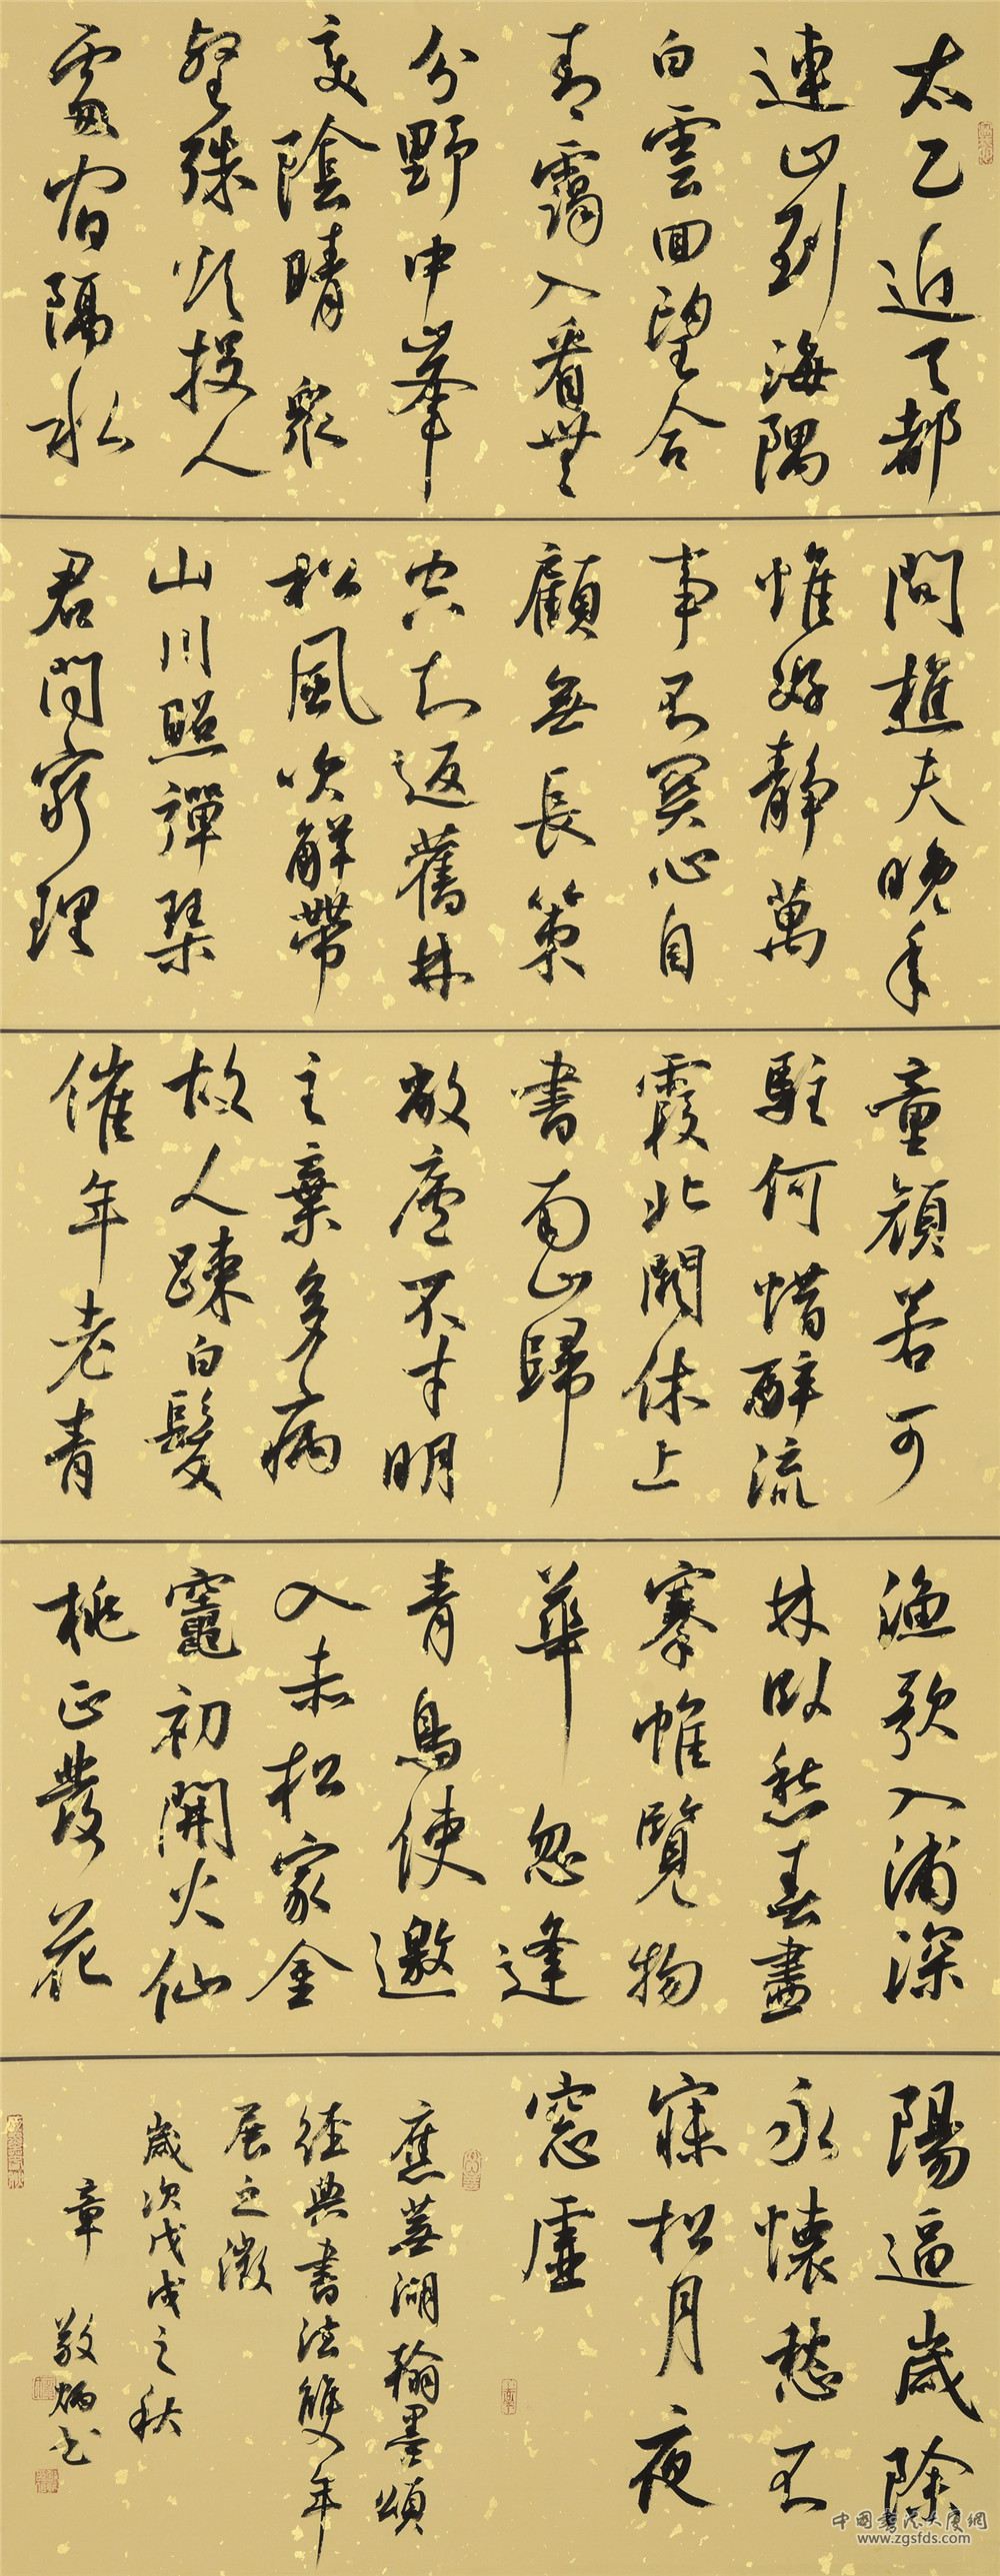 太乙近天都
連山到海隅
白雲回望合
青靄入看無
分野中峰
變陰晴眾
壑殊欲投人
處宿隔水
問樵夫晚年
惟好靜萬
事不關心自
顧無長策
空知返舊林
松風吹解帶
山月照彈琴
君問窮理
童顏若可
駐何惜醉流
霞北闕休上
書南山歸
敝廬不才明
主棄多病
故人疎白髮
催年老青
漁歌入浦深
林臥愁春盡
搴帷覽物
華忽逢
青鳥使邀
入赤松家金
竈初開火仙
桃正發花
陽逼歲除
永懷愁不
寐松月夜
窓虛
應蕪湖翰墨頌
經典書法雙年
展之徵
歲次戊戌之秋
章敬炳書
中國書法大廈網
www.zgsfds.com